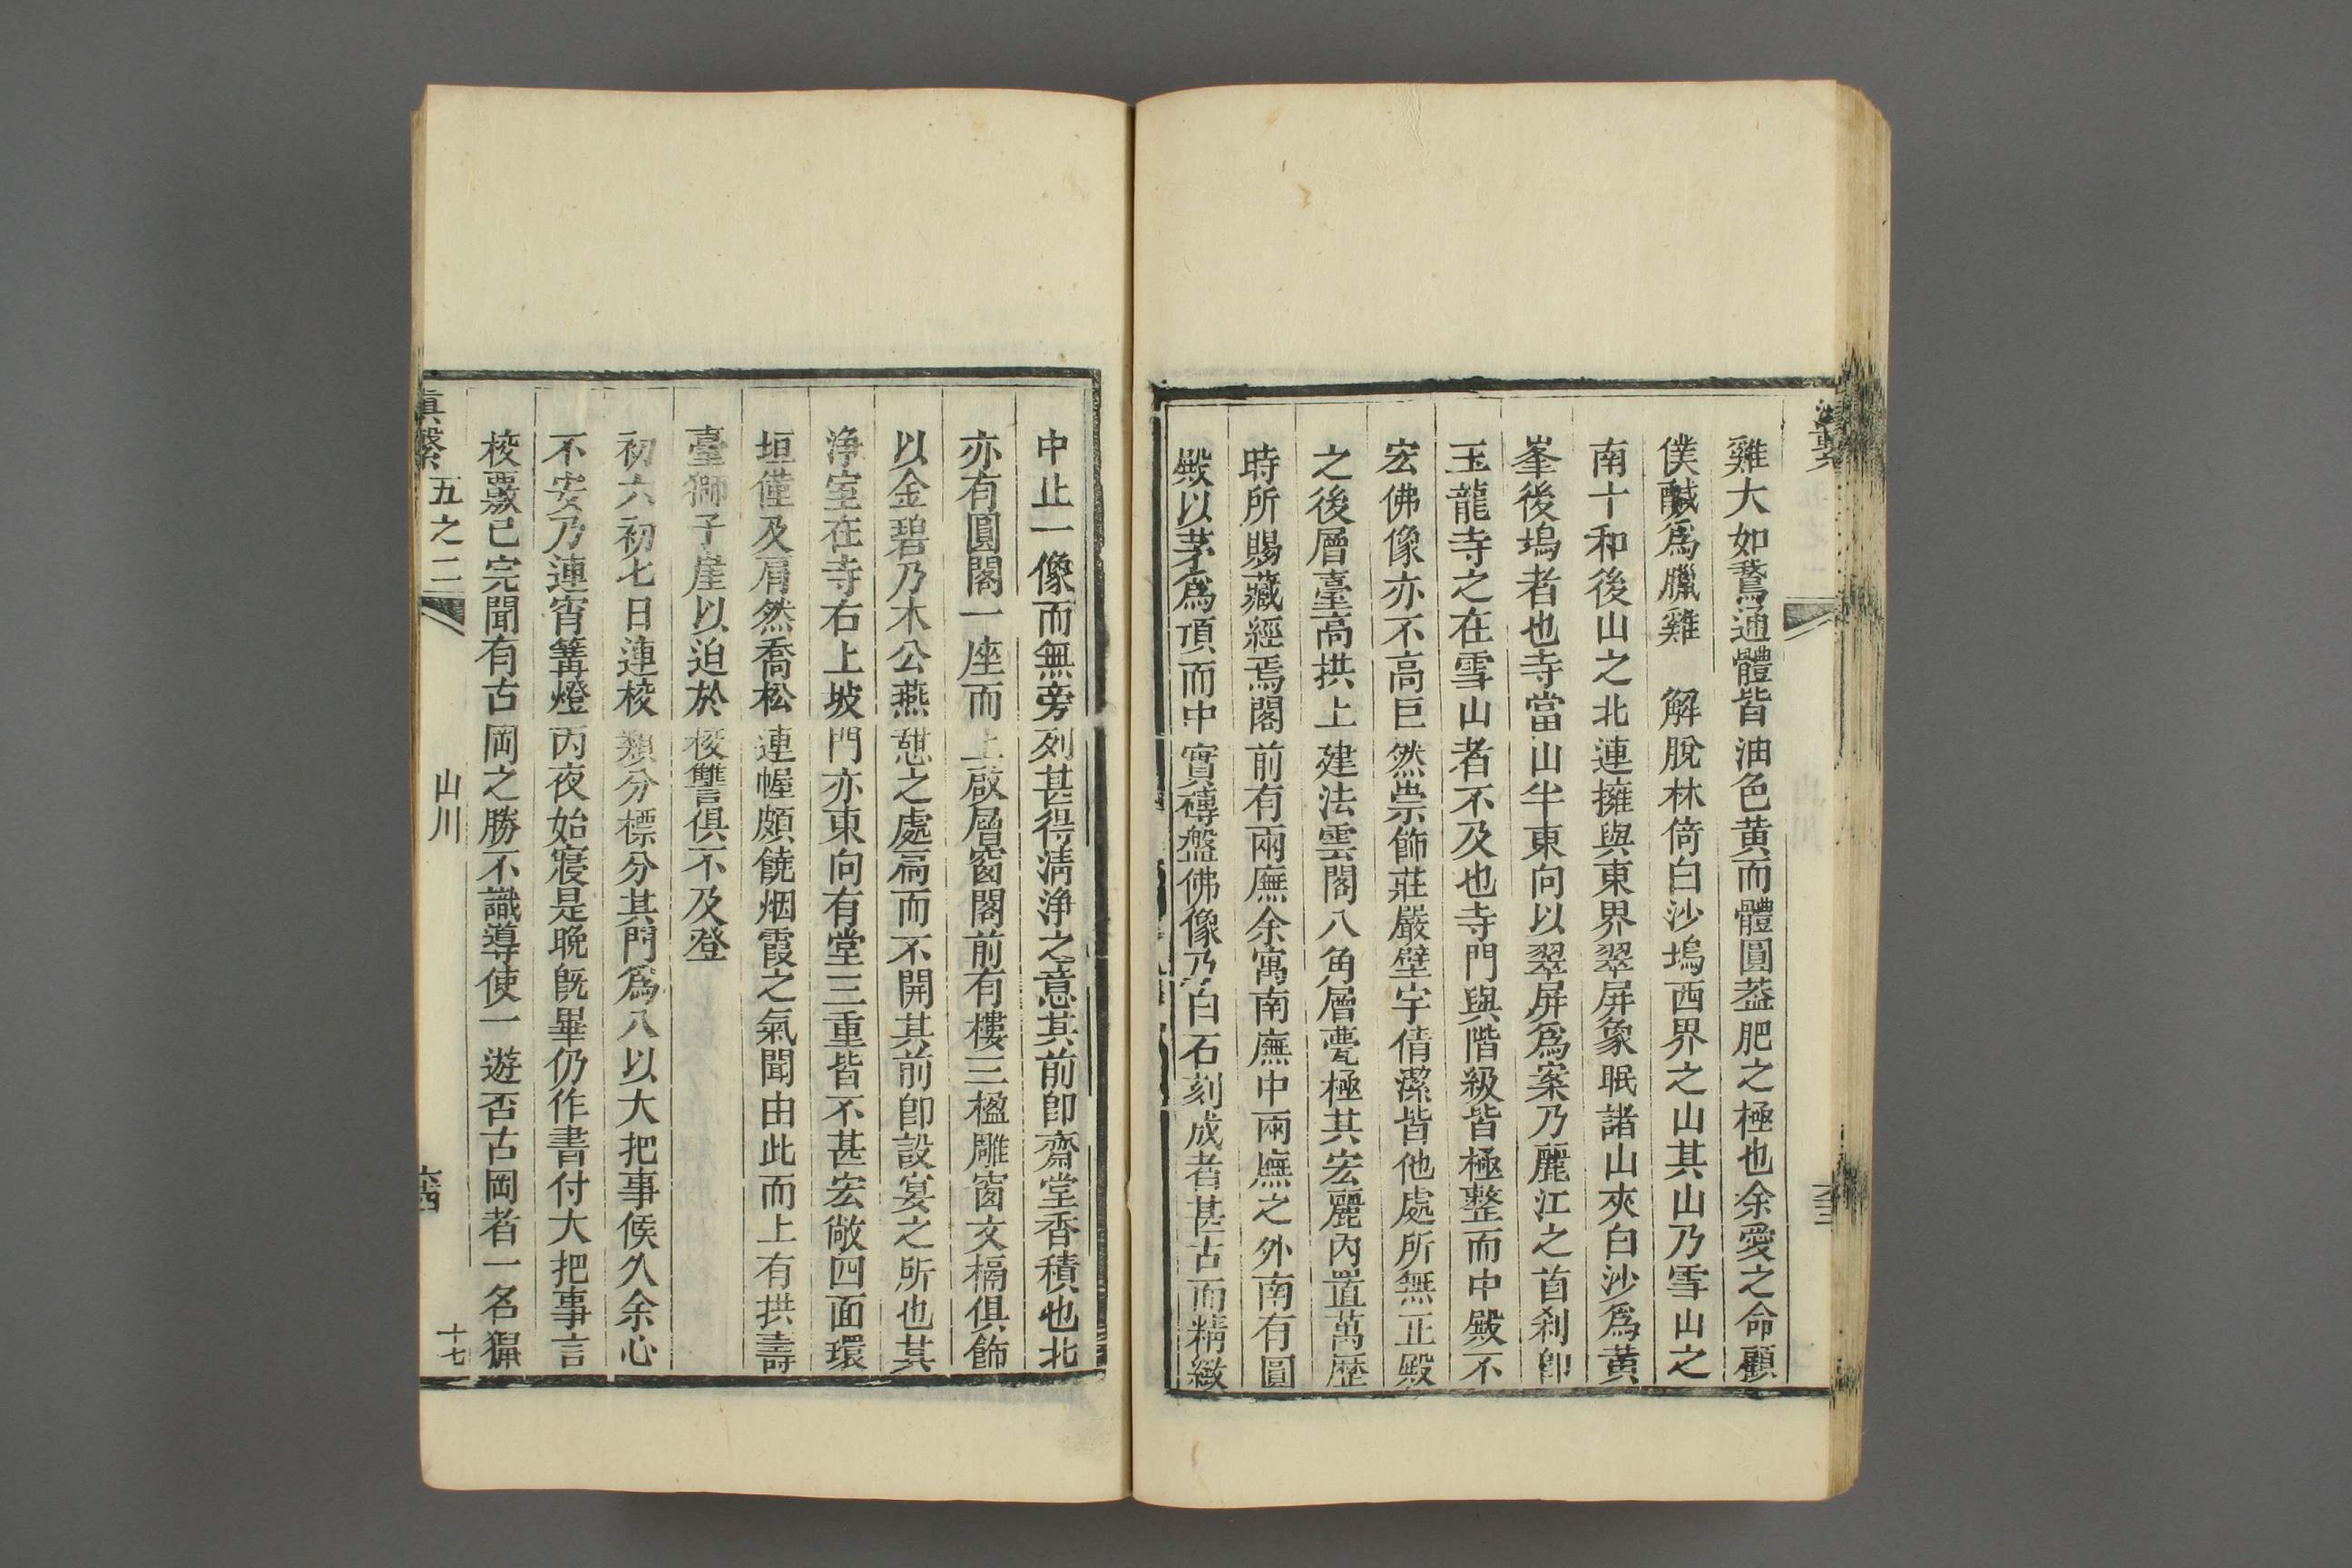 雞大如鵞通體皆油色黄而體圓葢肥之極也余愛之命顧
僕醎爲臘雞　解脫林倚白沙塢西界之山其山乃雪山之
南十和後山之北連擁與東界翠屏象眠諸山夾白沙爲黄
峯後塢者也寺當山半東向以翠屏爲案乃麗江之首刹卽
玉龍寺之在雪山者不及也寺門與階級皆極整而中殿不
宏佛像亦不高巨然崇飾莊嚴壁宇倩潔皆他處所無正殿
之後層臺高拱上建法雲閣八角層甍極其宏麗內置萬歴
時所賜藏經焉閣前有兩廡余寓南廡中兩廡之外南有圓
殿以茅爲頂而中實磚盤佛像乃白石刻成者甚古而精緻
中止一像而無旁列甚得淸浄之意其前卽齋堂香積也北
亦有圓閣一座而上啟層窗閣前有樓三楹雕窗文槅俱飾
以金碧乃木公燕憇之處扃而不開其前卽設宴之所也其
浄室在寺右上坡門亦東向有堂三重皆不甚宏敞四面環
垣僅及肩然喬松連幄頗饒烟霞之氣聞由此而上有拱壽
臺獅子崖以迫於校讐俱不及登
初六初七日連校類分標分其門爲八以大把事候久余心
不安乃連宵篝燈丙夜始寢是晚旣畢仍作書付大把事言
校覈已完聞有古岡之勝不識導使一遊否古岡者一名𤞤
滇繫　五之二　山川　六十四　十七